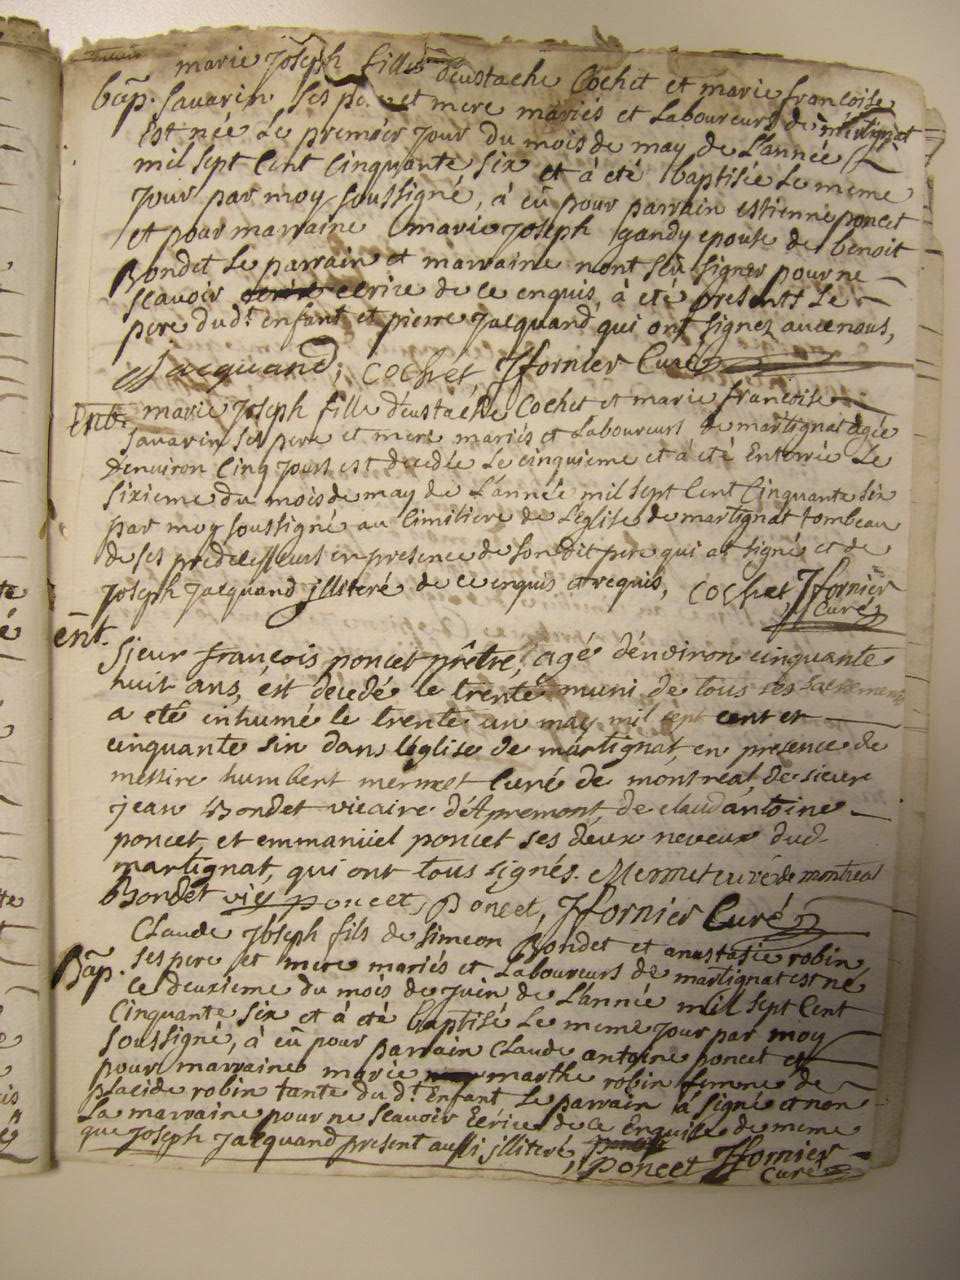 marie Joseph fille d'eustache Cochet et marie françoise
bap. Savarin ses pere et mere mariés et Laboureurs de martignat
est née Le premier jour du mois de may de L'année
mil sept Cent Cinquante six et à eté baptisée Le meme
Jour par moy soussigné, à eû pour parrain estienne poncet
et pour marraine marie Joseph gandy epouse de benoit
Bondet Le parrain et marraine nont sçu signer pour ne
sçavoir ecrire de ce enquis, à été present Le
pere dud.t enfant et pierre Jacquand qui ont signez avec nous,
Jacquand, Cochet, Jfornier Curé
Ent. marie Joseph fille d'eustache Cochet et marie francoise
Savarin, ses pere et mere mariés et Laboureurs de martignat agée
denviron Cinq Jours est decedée Le cinquieme et à eté Enterrée Le
sixieme du mois de may de L'année mil sept Cent Cinquante six
par moy soussigné au Cimitiere de L'eglise de martignat tombeau
de ses predecesseurs en presence de son dit pere qui at signé et de
Joseph Jacquand illiteré de ce enquis et requis, Cochet Jfornier
Curé
ent.
Sieur françois poncet prêtre, agé d'environ cinquante
huit ans, est decedé le trente muni de tous ses sacrements
a eté inhumé le trente un may mil sept cent et
cinquante six dans l'église de martignat, en presence de
messire humbert mermet Curé de montreal, de sieur
jean Bondet vicaire d'Apremont, de claud antoine
poncet, et emmanüel poncet ses deux neveux dud.
martignat, qui ont tous signés. Mermet curé de montreal
Bondet vic poncet, Poncet, Jfornier Curé
Claude Joseph fils de Simeon Bondet et anastasie robin
Bap. ses pere et mere mariés et Laboureurs de martignat est né
Le deuxieme du mois de Juin de L'année mil sept Cent
Cinquante six et à eté baptisé Le meme Jour par moy
soussigné, à eû pour parrain Claude antoine poncet et
pour marraine marie marthe robin femme de
placide robin tante du d.t Enfant Le parrain à signé et non
La marraine pour ne sçavoir Ecrire de ce Enquise de meme
que Joseph Jacquand present aussi illiteré, poncet Jfornier
Curé